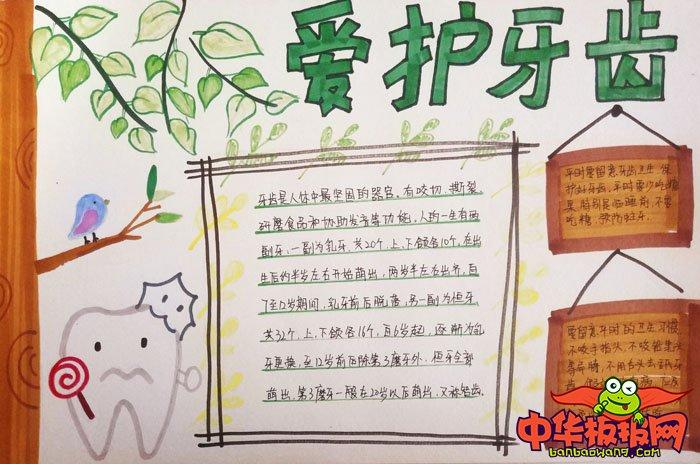 爱护牙齿
牙齿是人体中最坚固的器官，有咬切、撕裂
研磨食品和协助发音等功能，人的一生有两
副牙，一副为乳牙，共20个，上、下颌各10个，在出
生后约半岁左右开始萌出，两岁半左右出齐，自
6至12岁期间，乳牙前后脱落，另一副为恒牙
共32个，上、下颌各16个，自6岁起，逐渐为乳
牙更换，至12岁前后除第3磨牙外，恒牙全部
萌出，第3磨牙一般在20岁以后萌出，又称智齿。
平时要留意牙齿卫生，保
护好牙齿，平时要少吃糖
果，特别是临睡前，不要
吃糖，预防蛀牙。
要留意平时的卫生习惯
不咬手指头，不咬铅笔头
等异物，不用舌头去舐牙
齿
中华板报网
banbaowang.com